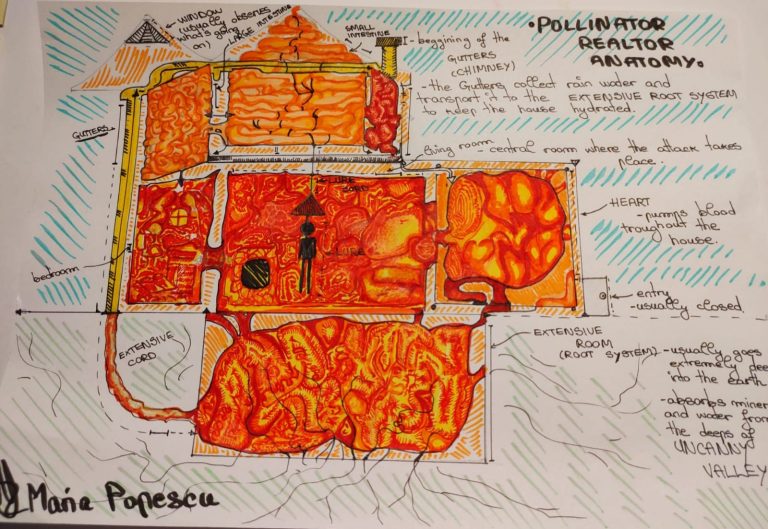 • POLLINATOR
REALTOR
ANATOMY.
WINDOW
(usually observes
what's going
on)
LARGE INTESTINE
SMALL
INTESTINE
- beggining of the
GUTTERS
(CHIMNEY)
- the Gutters collect rain water and
transport it to the EXTENSIVE ROOT SYSTEM
to keep the house hydrated.
GUTTERS
living room - central room where the attack takes
place.
LURE
CORD
LURE
HEART
- pumps blood
troughout the
house.
bedroom
entry
- usually closed
EXTENSIVE
CORD
EXTENSIVE
ROOM
(ROOT SYSTEM)
- usually goes
extremely dee
into the earth.
- absorbs miner
and water from
the deeps of
UNCANNY
VALLEY
Maria Popescu